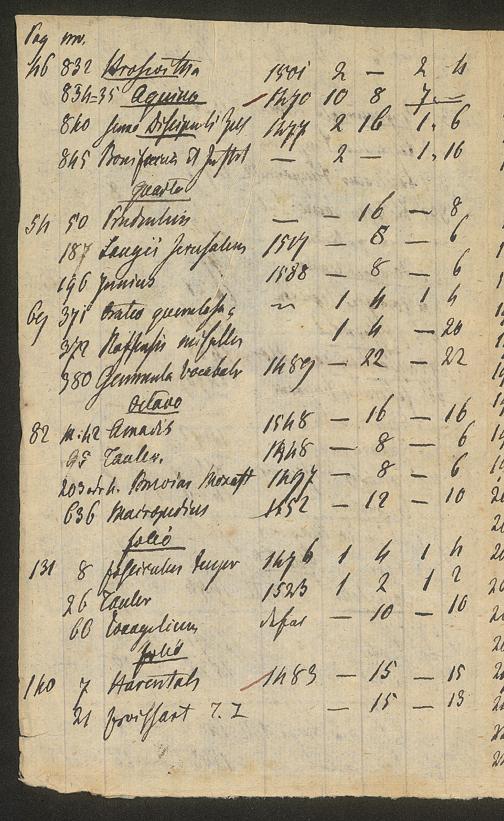 Pag no.
46 832 Hroswitha 1501 2 — 2 4
834=35 Aquino 1470 10 8 7 —
840 Discipuli 1477 2 16 1. 6
845 Bonifacius — 2 — 1. 16
Quarto
54 50 Prudentius — — 16 — 8
187 Langii Jerusalem 1517 — 8 — 6
196 Junius 1588 — 8 — 6
69 371 Oratio querulosa ~ 1 4 1 4
372 1 4 — 20
380 Gemmula Vocabulor 1489 — 22 — 22
Octavo
82 Amadis 1548 — 16 — 16
95 Tauler. 1548 — 8 — 6
203 1497 — 8 — 6
636 Macropedius 1552 — 12 — 10
folio
131 8 fasciculus temper 1476 1 4 1 4
26 Tauler 1523 1 2 1 2
60 Evangelium defec — 10 — 10
folio
140 7 Harentals 1483 — 15 — 15
21 Froissart T. I — 15 — 13